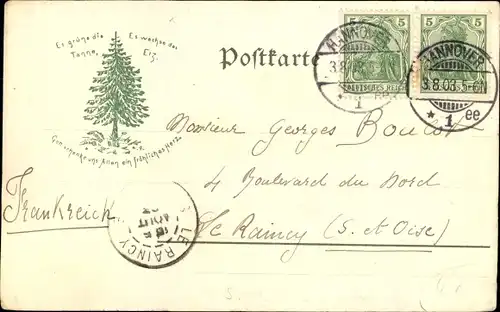 Es grüne die Tanne,
Es wachse das Erz,
Gott schenke uns Allen ein fröhliches Herz.
Postkarte
5 5
DEUTSCHES REICH
HANNOVER
3.8.03
* 1
HANNOVER
3.8.03.5-6
* 1 ee
Monsieur Georges
4 Boulevard du Nord
Le Raincy (S. et Oise)
Frankreich
LE RAINCY
AOUT
03